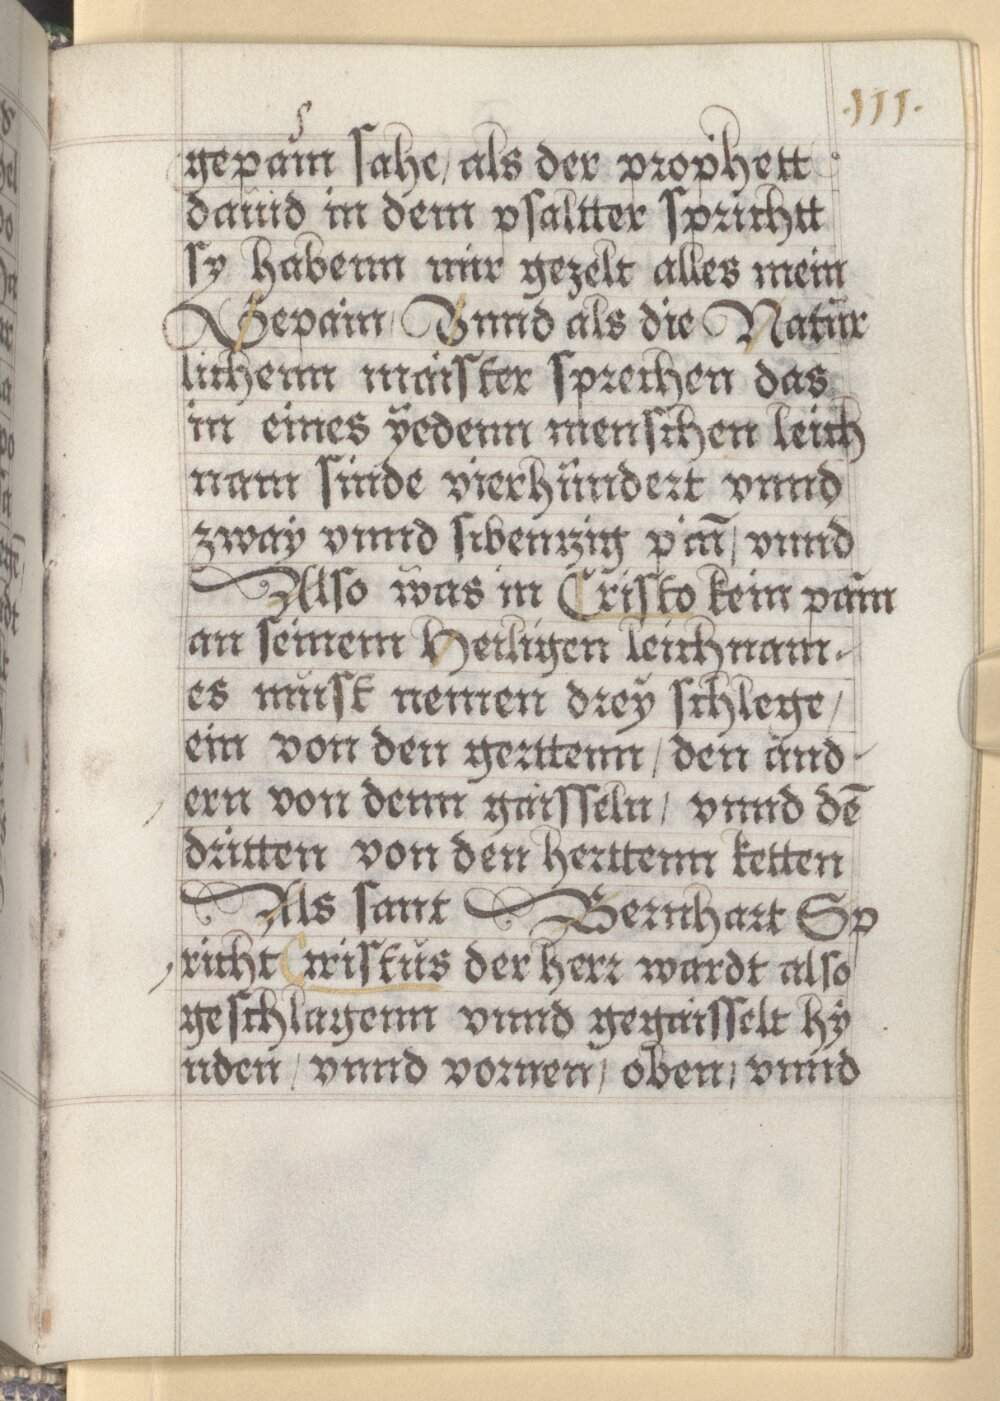 ·III·
gepain sahe / als der prophett
dauid in dem psaltter sprichtt
sy habenn mir gezelt alles mein
Gepain / Vnnd als die Natur
lichenn maister sprechen das
in eines ÿedenn menschen leich
nam sinde vierhundert vnnd
zwaÿ vnnd sibenzig pain̄ / vnnd
Also was in Cristo kein pain
an seinem Heiligen leichnam ·
es must nemen dreÿ schlege /
ein von den gerttenn / den and
ern von denn gaisseln / vnnd dē
dritten von den herttenn ketten
Als sant Bernhart Sp
richt Cristus der herr wardt also
geschlagenn vnnd gegaisselt hÿ
nden / vnnd vornen / oben / vnnd